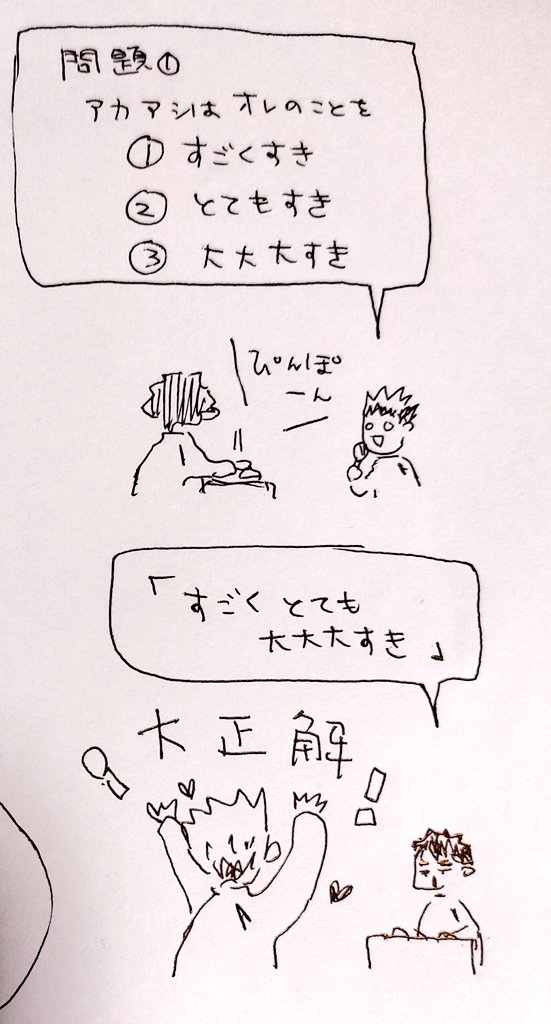 問題①
アカアシは オレのことを
① すごくすき
② とてもすき
③ 大大大すき
ぴんぽ
ーん
「すごく とても
大大大すき」
大正解
!
!